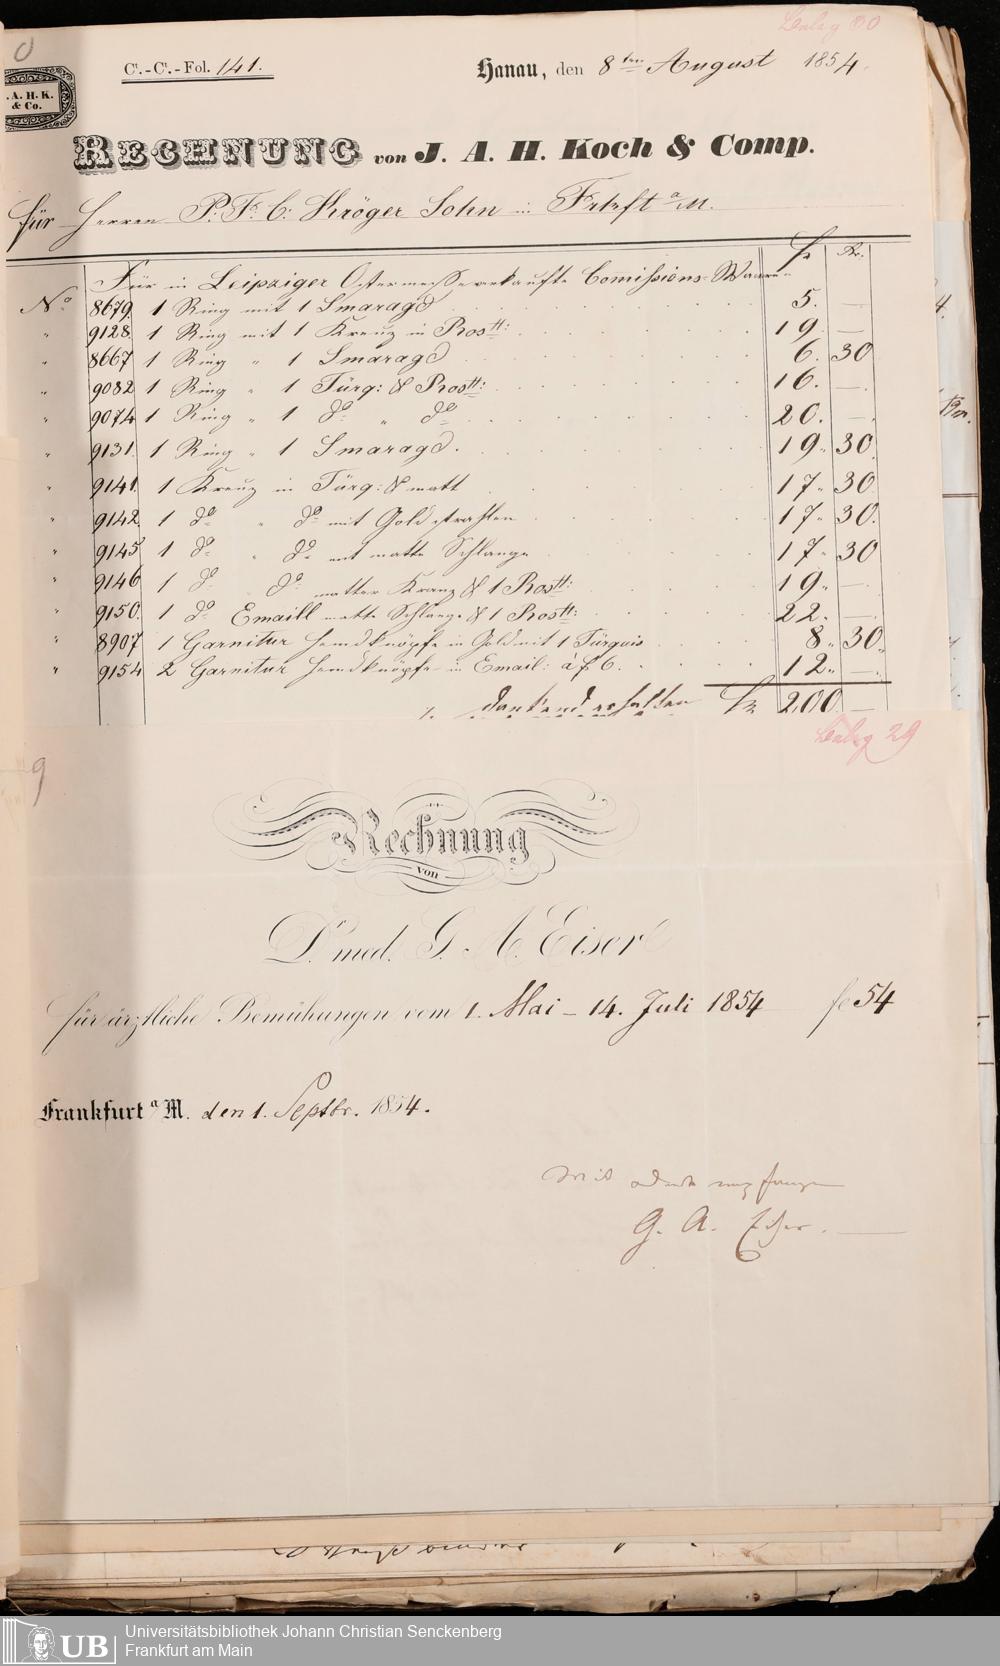 Beleg 30
Ct.-Ct.-Fol. 141.
Hanau, den 8ten August 1854.
A. H. K. & Co.
RECHNUNG von J. A. H. Koch & Comp.
für Herren P. Fr. C. Kröger Sohn in Frkft a/M.
Für in Leipziger Ostermesse verkaufte Comissions-Waaren fl Kr.
No. 8679. 1 Ring mit 1 Smaragd 5. —
" 9128. 1 Ring mit 1 Kreuz in Rostt: 19. —
" 8667 1 Ring " 1 Smaragd 6. 30
" 9082 1 Ring " 1 Türq: & Rostt: 16. —
" 9074 1 Ring " 1 do " do 20. —
" 9131. 1 Ring " 1 Smaragd. 19. 30
" 9141. 1 Kreuz in Türq: & matt 17. 30
" 9142. 1 do " do mit Goldstrahlen 17. 30.
" 9145 1 do " do mit matte Schlange 17. 30
" 9146 1 do do matter Kranz & 1 Rostt: 19. —
" 9150. 1 do Emaill matte Schlange & 1 Rostt: 22. —
" 8907 1 Garnitur Hemdknöpfe in Gold mit 1 Türquis 8. 30.
" 9154 2 Garnitur Hemdknöpfe in Email: à fl 6. 12. —
dankend erhalten fl 200. —
Beleg 29
Rechnung
von
Dr. med. G. A. Eiser
für ärztliche Bemühungen vom 1. Mai – 14. Juli 1854 fl 54
Frankfurt a M. den 1. Septbr. 1854.
Mit Dank empfangen
G. A. Eiser.
UB
Universitätsbibliothek Johann Christian Senckenberg
Frankfurt am Main